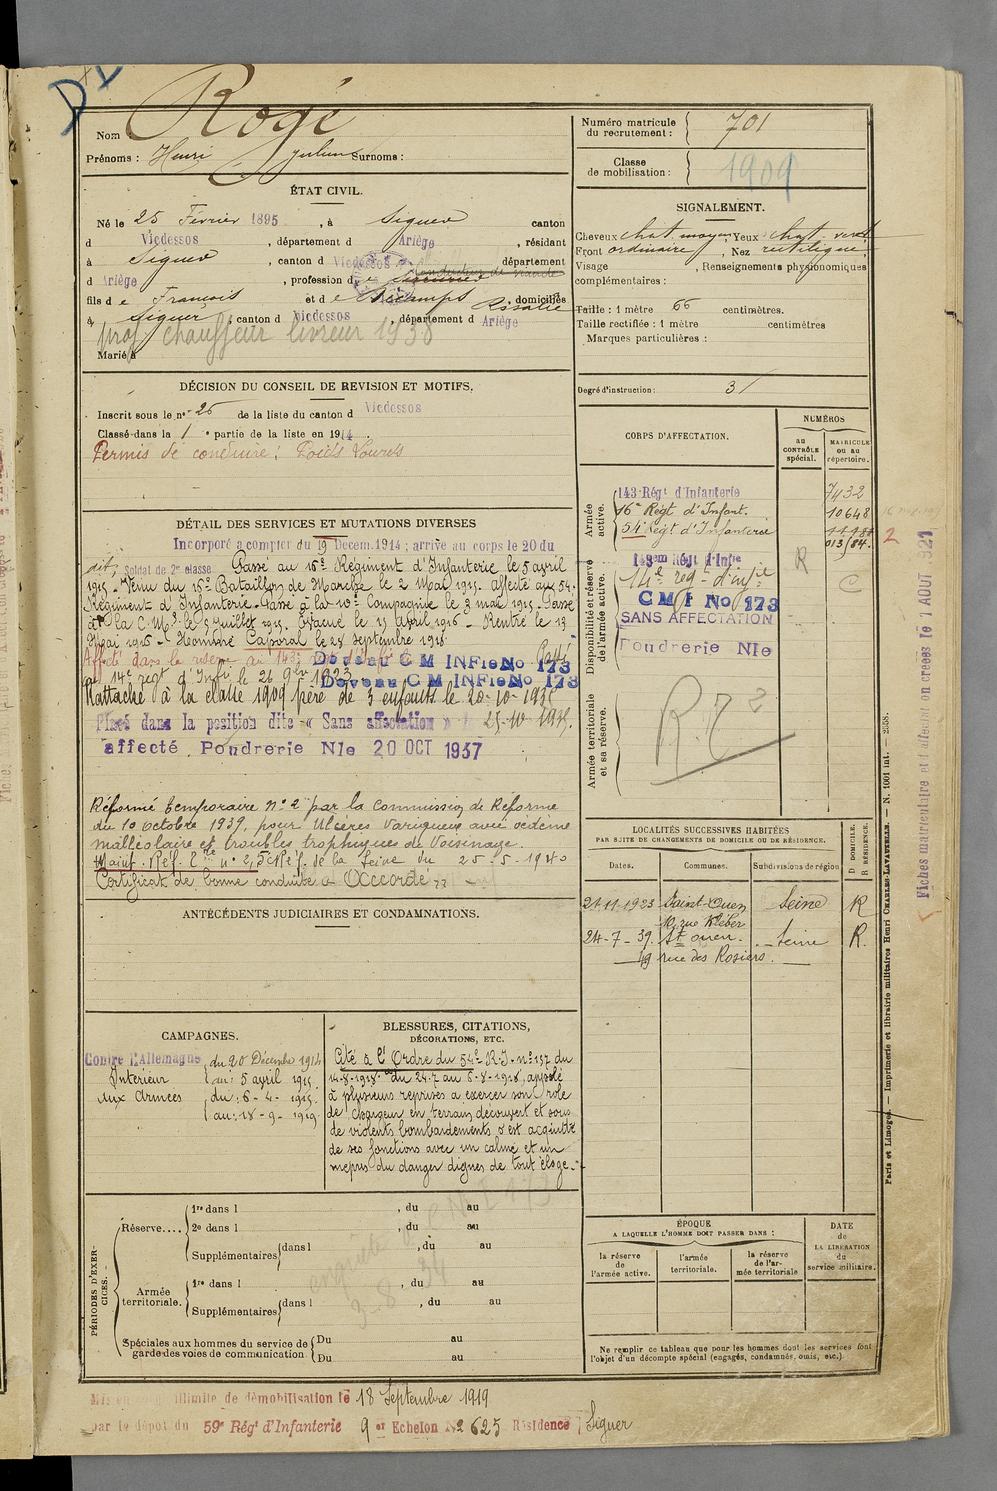 Rogé
Nom :
Prénoms : Henri Julien Surnoms :
ÉTAT CIVIL.
Né le 25 Février 1895, à Siguer canton
d Vicdessos, département d Ariège, résidant
à Siguer, canton d Vicdessos département
d Ariège, profession de
fils de François et de Escamps Rosalie, domiciliés
à Siguer, canton d Vicdessos, département d Ariège
prof chauffeur livreur 1938
Marié à
DÉCISION DU CONSEIL DE REVISION ET MOTIFS.
Inscrit sous le n° 25 de la liste du canton d Vicdessos
Classé dans la 1e partie de la liste en 1914
Permis de conduire : Poids Lourds
DÉTAIL DES SERVICES ET MUTATIONS DIVERSES
Incorporé à compter du 19 Décem. 1914 ; arrivé au corps le 20 du
dit, Soldat de 2e classe. Passé au 16e Régiment d'Infanterie le 5 avril
1915. Venu du 16e Bataillon de Marche le 2 Mai 1915. affecté au 54e
Régiment d'Infanterie. Passé à la 10e Compagnie le 3 mai 1915. Passé
à la C. M. le 5 Juillet 1915. Evacué le 11 Avril 1916 - Rentré le 13
Mai 1916 - Nommé Caporal le 28 septembre 1918
Affecté dans la réserve au 143e Passé
au 14e régt d'Infie le 26 9bre 1923
Devenu C M INFie No 173
Devenu C M INFie No 173
Rattaché à la classe 1909 père de 3 enfants le 20-10-193
Placé dans la position dite « Sans affectation »
affecté Poudrerie Nle 20 OCT 1937
Réformé temporaire n° 2 par la Commission de Réforme
du 10 octobre 1939, pour Ulcères variqueux avec oedème
malléolaire et troubles trophiques de Voisinage.
Maint. Réf. t n° 2, C. Réf. de la Seine du 25-5-1940
Certificat de bonne conduite « Accordé »
ANTÉCÉDENTS JUDICIAIRES ET CONDAMNATIONS.
CAMPAGNES.
Contre l'Allemagne du 20 Décembre 1914
Intérieur au : 5 avril 1915
Aux Armées du : 6-4-1915
au : 18-9-1919
BLESSURES, CITATIONS,
DÉCORATIONS, ETC.
Cité à l'Ordre du 54e R.I. n° 137 du
14-8-1918. du 24-7 au 6-8-1918, appelé
à plusieurs reprises à exercer son rôle
de chargeur en terrain découvert et sous
de violents bombardements s'est acquitté
de ses fonctions avec un calme et un
mépris du danger dignes de tout éloge.
PÉRIODES D'EXERCICES.
Réserve....
1re dans l , du au
2e dans l , du au
Supplémentaires dans l , du au
Armée territoriale.
1re dans l , du au
Supplémentaires dans l , du au
Spéciales aux hommes du service de garde des voies de communication
Du au
Du au
illimité de démobilisation le 18 Septembre 1919
par le dépôt du 59e Régt d'Infanterie 9 er Echelon No 625 Résidence Siguer
Numéro matricule du recrutement : 701
Classe de mobilisation : 1909
SIGNALEMENT.
Cheveux chat. moyen, Yeux chat. verd
Front ordinaire, Nez rectiligne
Visage , Renseignements physionomiques
complémentaires :
Taille : 1 mètre 66 centimètres.
Taille rectifiée : 1 mètre centimètres
Marques particulières :
Degré d'instruction : 3
CORPS D'AFFECTATION.
NUMÉROS
au CONTRÔLE spécial.
MATRICULE ou au répertoire.
Armée active.
143 Régt d'Infanterie 7432
16e Régt d'Infant. 10648
54 Régt d'Infanterie
013/84.
Disponibilité et réserve de l'armée active.
143em Régt d'Infie R
14e reg- d'inf ie C
C M I No 173
SANS AFFECTATION
Poudrerie Nle
Armée territoriale et sa réserve.
R. 7 2
LOCALITÉS SUCCESSIVES HABITÉES
PAR SUITE DE CHANGEMENTS DE DOMICILE OU DE RÉSIDENCE.
D DOMICILE.
R RÉSIDENCE.
Dates. Communes. Subdivisions de région
21-11-1923 Saint-Ouen Seine R
rue Kléber
24-7-39. St ouen. Seine R.
49 rue des Rosiers.
ÉPOQUE
A LAQUELLE L'HOMME DOIT PASSER DANS :
la réserve de l'armée active.
l'armée territoriale.
la réserve de l'armée territoriale
DATE de LA LIBÉRATION du service militaire.
Ne remplir ce tableau que pour les hommes dont les services font
l'objet d'un décompte spécial (engagés, condamnés, omis, etc.)
Paris et Limoges. — Imprimerie et librairie militaires Henri CHARLES-LAVAUZELLE. — N. 1001 int. — 2558.